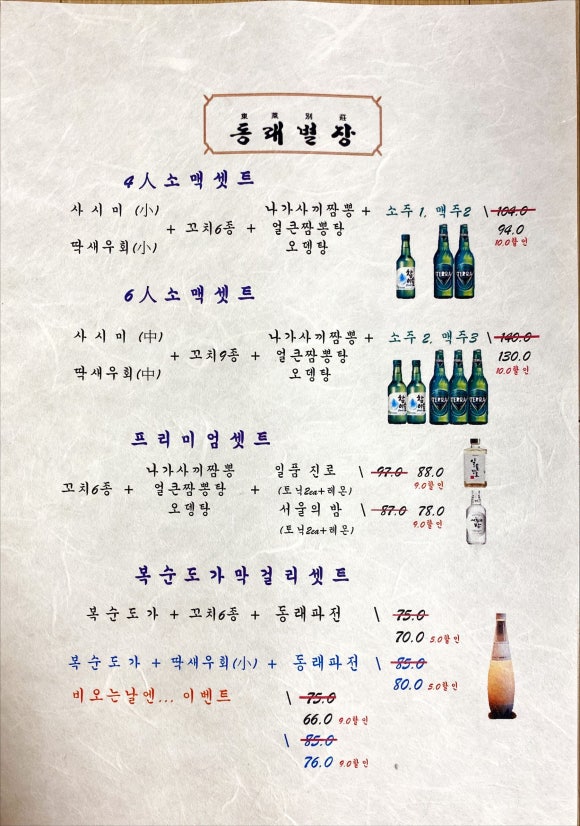 東萊別莊
동래별장
4人소맥셋트
사시미 (小) + 꼬치6종 + 나가사끼짬뽕 + 소주 1, 맥주2 \ 104.0
딱새우회(小) 얼큰짬뽕탕 94.0
오뎅탕 10.0할인
6人소맥셋트
사시미 (中) + 꼬치9종 + 나가사끼짬뽕 + 소주 2, 맥주3 \ 140.0
딱새우회(中) 얼큰짬뽕탕 130.0
오뎅탕 10.0할인
프리미엄셋트
나가사끼짬뽕 일품 진로 \ 97.0 88.0
꼬치6종 + 얼큰짬뽕탕 + (토닉2ea+레몬) 9.0할인
오뎅탕 서울의 밤 \ 87.0 78.0
(토닉2ea+레몬) 9.0할인
복순도가막걸리셋트
복순도가 + 꼬치6종 + 동래파전 \ 75.0
70.0 5.0할인
복순도가 + 딱새우회(小) + 동래파전 \ 85.0
80.0 5.0할인
비오는날엔... 이벤트 \ 75.0
66.0 9.0할인
\ 85.0
76.0 9.0할인
TERRA
TERRA
TERRA
TERRA
TERRA